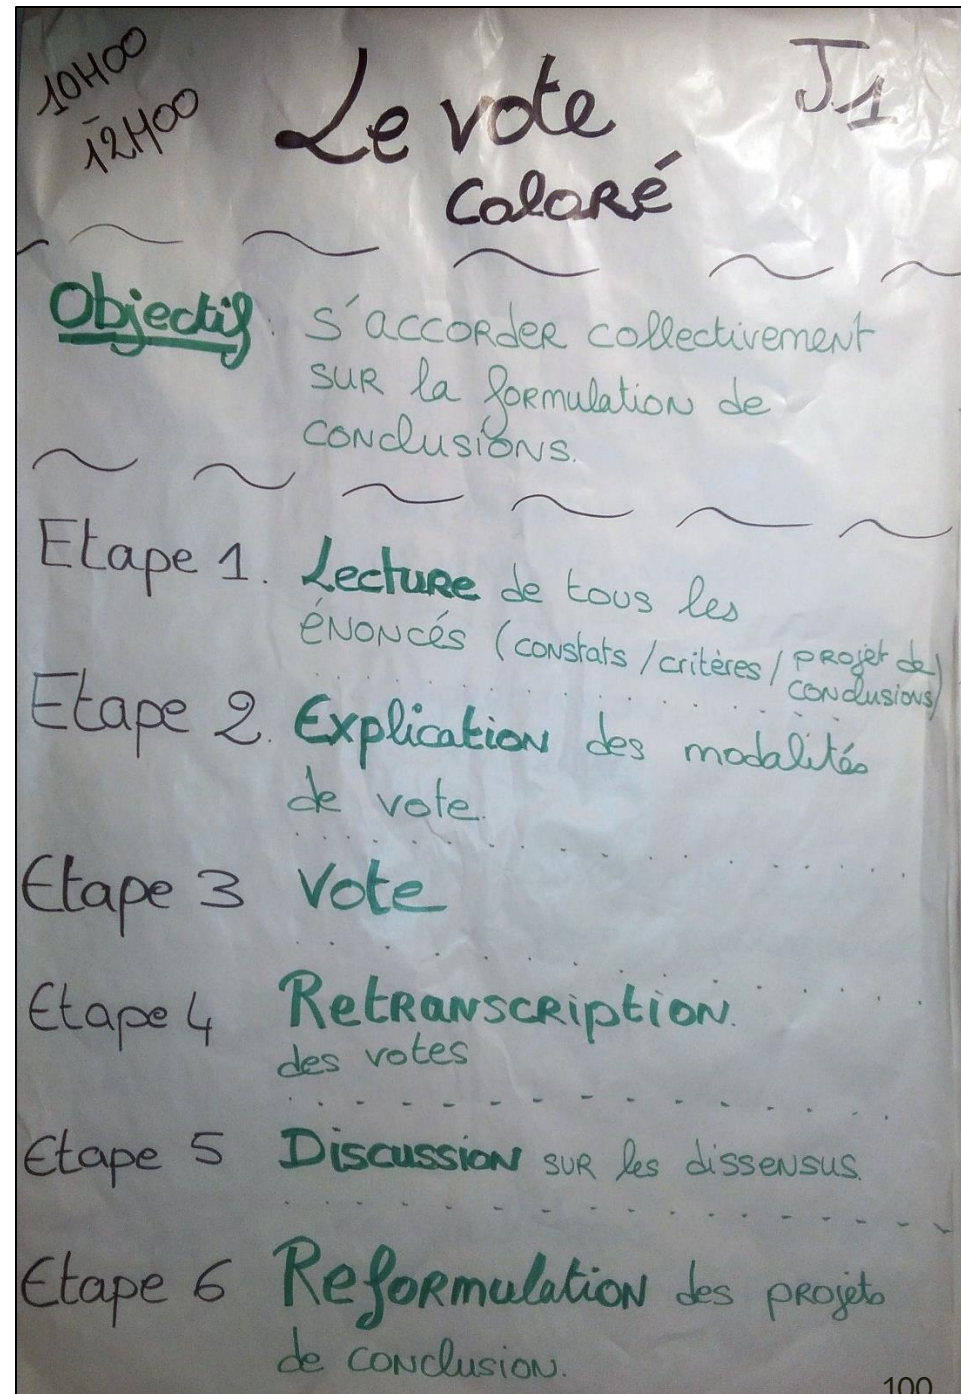 10H00
-
12H00
Le vote
coloré
J1
Objectif: s'accorder collectivement
sur la formulation de
conclusions.
Etape 1. Lecture de tous les
énoncés (constats/critères/projet de
conclusions)
Etape 2. Explication des modalités
de vote.
Etape 3 Vote
Etape 4 Retranscription.
des votes
Etape 5 Discussion sur les dissensus.
Etape 6 Reformulation des projets
de conclusion.
100